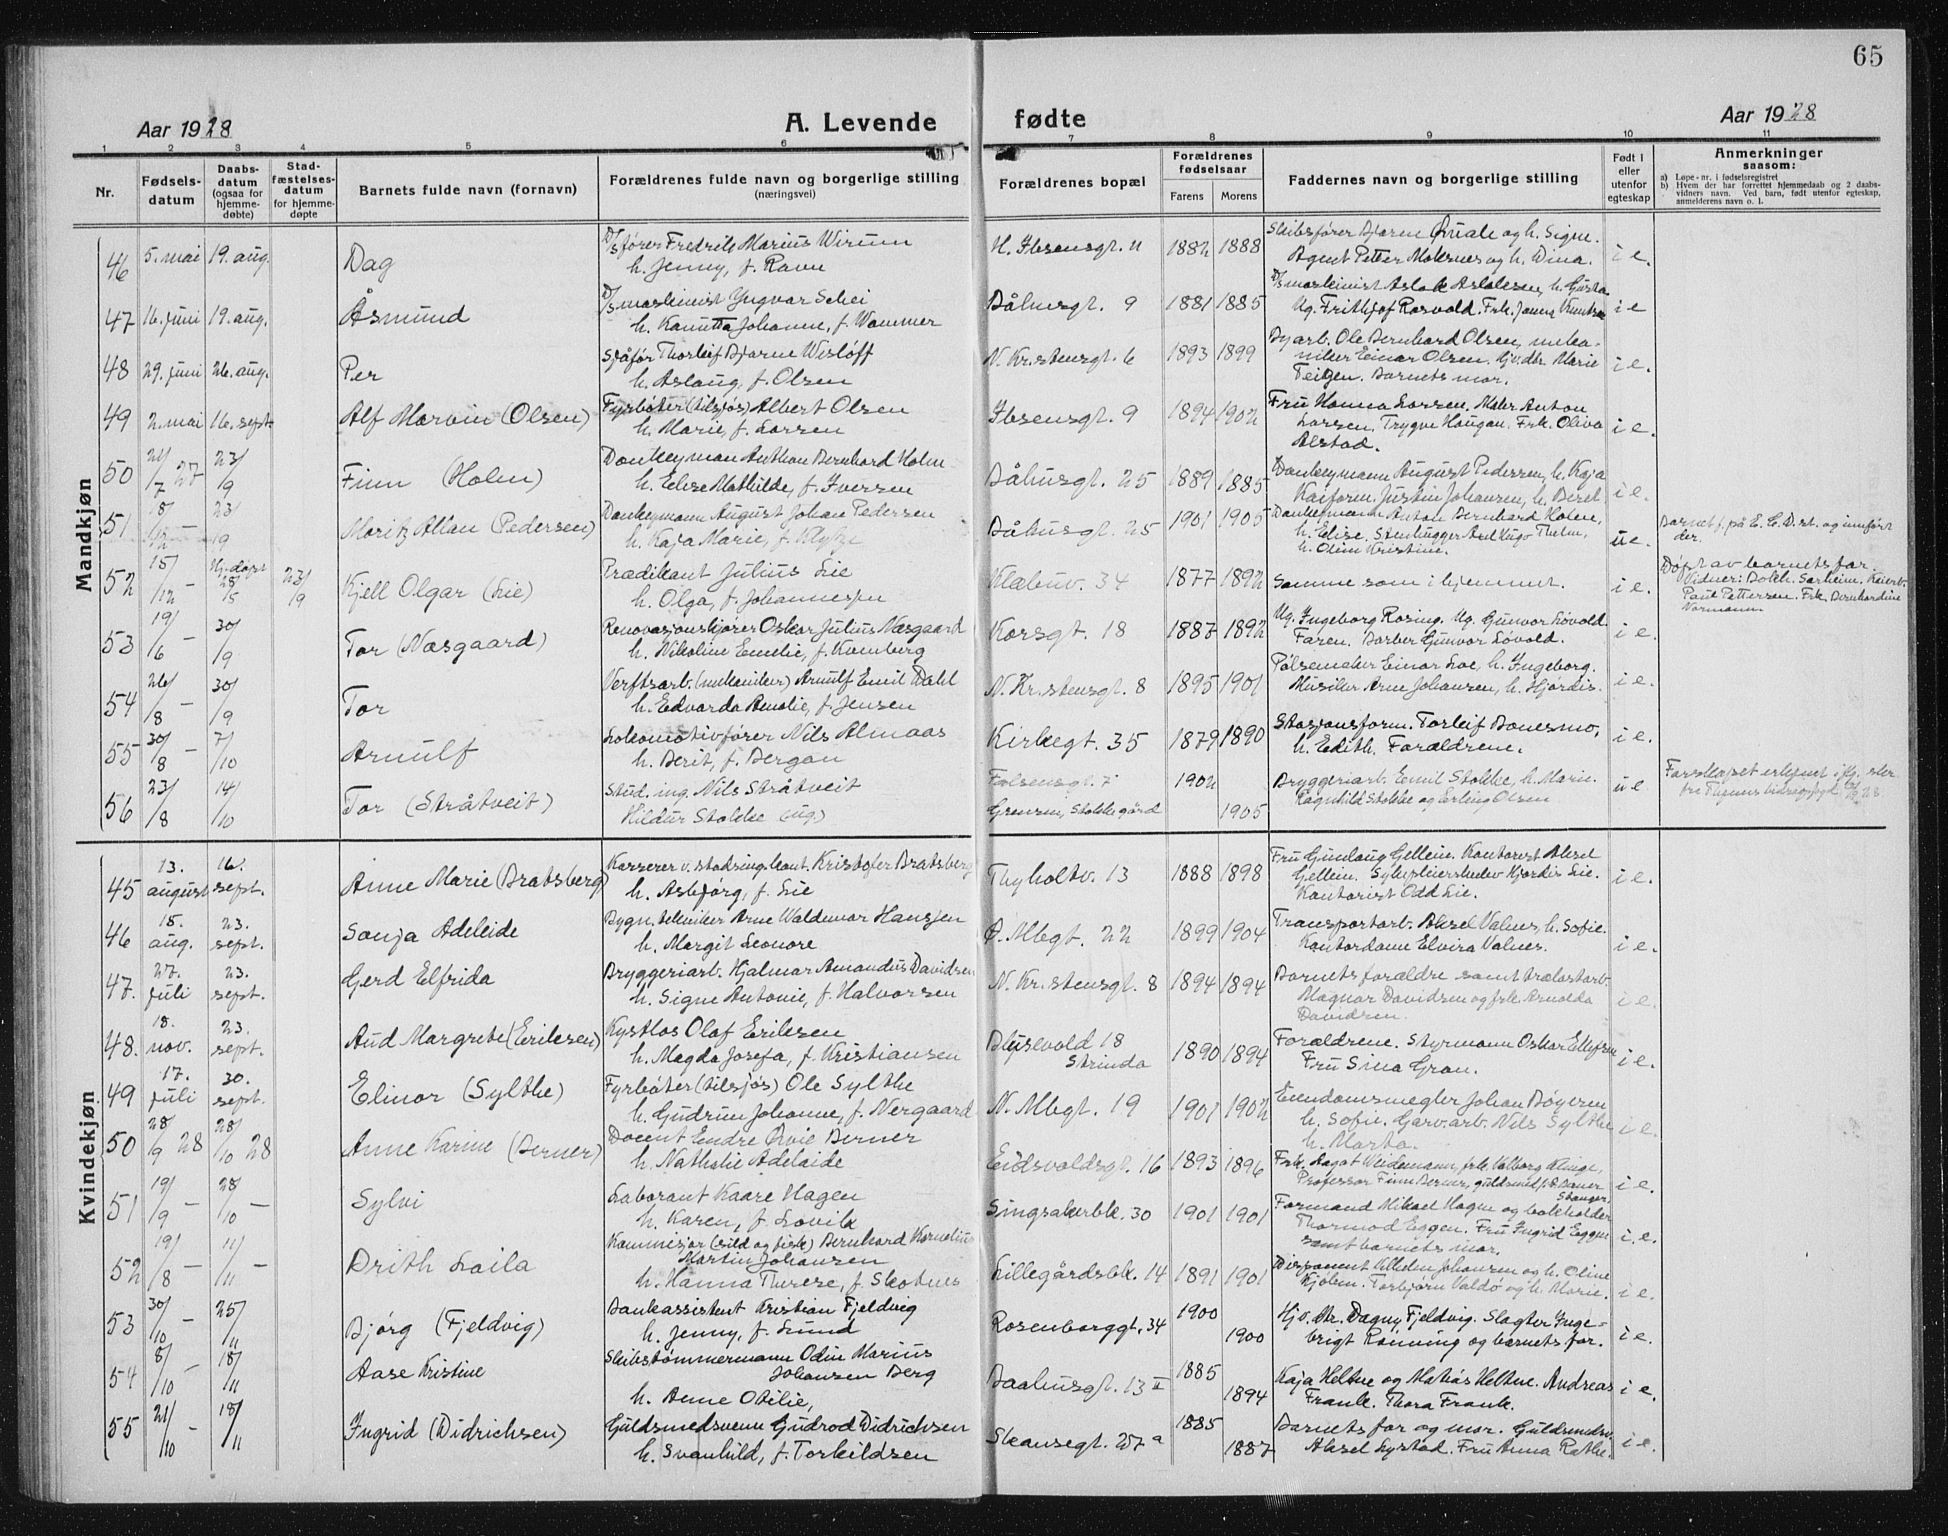 65
Aar 1928
A. Levende
fødte
Aar 1928
1 2 3 4 5 6 7 8 9 10 11
Nr.
Fødsels-
datum
Daabs-
datum
(ogsaa for
hjemme-
døbte)
Stad-
fæstelses-
datum
for hjemme-
døpte
Barnets fulde navn (fornavn)
Forældrenes fulde navn og borgerlige stilling
(næringsvei)
Forældrenes bopæl
Forældrenes
fødselsaar
Farens Morens
Faddernes navn og borgerlige stilling
Født i
eller
utenfor
egteskap
Anmerkninger
saasom:
a) Løpe-nr. i fødselsregistret
b) Hvem der har forrettet hjemmedaab og 2 daabs-
vidners navn. Ved barn, født utenfor egteskap,
anmelderens navn o. l.
Mandkjøn
46 5. mai 19. aug. Dag
D/S fører Fredrik Marius Wirum
h. Jenny, f. Ravn
H. Ibsensgt. 11 1882 1888
Skibsfører Bjarne Qvale og h. Signe.
Agent Petter Moksnes og h. Dina.
i e.
47 16. juni 19. aug. Åsmund
D/S maskinist Yngvar Schei
h. Kanutta Johanne, f. Wammer
Båhusgt. 9 1881 1885
D/S maskinist Aslak Aslaksen, h. Gusta
Ug. Frithjof Rosvold. Frk. Janna Knutsen
i e
48 29. juni 26. aug. Per
Sjåfør Thorleif Bjarne Wisløff
h. Aslaug, f. Olsen
N. Kr.stensgt. 6 1893 1899
Byarb. Ole Bernhard Olsen, meka-
niker Einar Olsen, Hjv. dtr. Marie
Teigen. Barnets mor.
i e.
49 2. mai 16. sept. Alf Marvin (Olsen)
Fyrbøter (tilsjøs) Albert Olsen
h. Marie, f. Larsen
Ibsensgt. 9 1894 1902
Fru Hanna Larsen. Maler Anton
Larsen. Trygve Haugan. Frk. Oliva
Alstad.
i e.
50 21/7 27 23/9 Finn (Holm)
Donkeyman Anthon Bernhard Holm
h. Elise Mathilde, f. Iversen
Båhusgt. 25 1889 1885
Donkeymann August Pedersen, h. Kaja
Kaiform. Justin Johansen, h. Beret
i e.
51 18/12 23/9 Moritz Allan (Pedersen)
Donkeymann August Johan Pedersen
h. Kaja Marie, f. Klykze
Båhusgt. 25 1901 1905
Donkeymann Anton Bernhard Holm,
h. Elise. Stenhugger Axel Hugo Thelin,
h. Olim Kristine.
u e.
Barnet f. på E. C. D. st. og innført
der.
52 15/12 Hj. døpt 28/5 23/9 Kjell Olgar (Lie)
Prædikant Julius Lie
h. Olga, f. Johannesen
Klæbuv. 34 1877 1892
Samme som i hjemmet.
i e.
Døpt av barnets far.
Vidner: Bokh. Sarheim. Keiserb.
Paul Pettersen. Frk. Bernhardine
Normann
53 19/6 - 30/9 Tor (Næsgaard)
Renovasjonskjører Oskar Julius Næsgaard
h. Nikoline Emelie, f. Kvernberg
Korsgt. 18 1887 1892
Ug. Ingeborg Rosing. Ug. Gunvor Løvold.
Faren. Barber Gunvor Løvold.
i e.
54 26/8 - 30/9 Tor
Verftsarb. (mekaniker) Arnulf Emil Dahl
h. Edvarda Amalie, f. Jensen
N. Kr.stensgt. 8 1895 1901
Pølsemaker Einar Loe, h. Ingeborg.
Musiker Arne Johansen, h. Hjørdis.
i e.
55 30/8 7/10 Arnulf
Lokomotivfører Nils Almaas
h. Berit, f. Bergan
Kirkegt. 35 1879 1890
Stasjonsform. Torleif Bonesmo,
h. Edith. Forældrene.
i e.
56 23/8 14/10 Tor (Stråtveit)
Stud. ing. Nils Stråtveit
Hildur Stokke (ug.)
Falsensgt. 7 1902
Grensen, Stokkegård 1905
Bryggeriarb. Emil Stokke, h. Marie.
Ragnhild Stokke og Erling Olsen
u e
Farskapet erkjent
fra Thjems bidragsfogd
Kvindekjøn
45 13. august 16. sept. Anne Marie (Bratsberg)
Kasserer v. stadsing. kont. Kristofer Bratsberg
h. Asbjørg, f. Lie
Thyholtv. 13 1888 1898
Fru Gunlaug Gellein. Kontorist Aksel
Gellein. Sykepleierskelev Hjørdis Lie.
Kontorist Odd Lie.
i e.
46 18. aug. 23. sept. Sonja Adeleide
Bygn. tekniker Arne Waldemar Hansen
h. Margit Leonore
Ø. Mbgt. 22 1899 1904
Transportarb. Aksel Valnes, h. Sofie.
Kontordame Elvira Valnes.
i e.
47. 27. juli 23. sept. Gerd Elfrida
Bryggeriarb. Hjalmar Amandus Davidsen
h. Signe Antonie, f. Halvorsen
N. Kr.stensgt. 8 1894 1894
Barnets forældre samt trælastarb.
Magnar Davidsen og frk. Arnolda
Davidsen.
i e.
48. 18. nov. 23. sept. Aud Margrete (Eriksen)
Kystlos Olaf Eriksen
h. Magda Josefa, f. Kristiansen
Blusevold 18
Strinda 1890 1894
Forældrene. Styrmann Oskar Ellefsen
Fru Sina Gran.
i e.
49 17. juli 30. sept. Elinor (Sylthe)
Fyrbøter (tilsjøs) Ole Sylthe
h. Gudrun Johanne, f. Nergaard
N. Mbgt. 19 1901 1902
Eiendomsmegler Johan Bøyesen
h. Sofie. Garv. arb. Nils Sylthe
h. Marta.
i e.
50 28/9 28 28/10 28 Anne Karine (Berner)
Docent Endre Qvie Berner
h. Nathalie Adelaide
Eidsvoldsgt. 16 1893 1896
Frk. Aagot Weidemann, frk. Valborg Klinge,
Professor Finn Berner, guldsmed
Stavanger
i e.
51 19/9 - 28/10 - Sylvi
Laborant Kaare Hagen
h. Karen, f. Lovik
Singsakerbk. 30 1901 1901
Formand Mikael Hagen og bokholder
Thormod Eggen. Fru Ingrid Eggen
samt barnets mor.
i. e.
52 19/8 - 11/11 - Drith Laila
Kommisjar (sild og fisk) Bernhard Kornelius
Martin Johansen
h. Hanna Therese, f. Skotnes
Lillegårdsbk. 14 1891 1901
Disponent Vilhelm Johansen og h. Oline
Kjølen. Torbjørn Valdø og h. Marie.
i e.
53 30/10 - 25/11 Bjørg (Fjeldvig)
Bankassistent Kristian Fjeldvig
h. Jenny, f. Lund
Rosenborggt. 34 1900 1900
Hjv. dtr. Dagny Fjeldvig. Slagter Inge-
brigt Rønning og barnets far.
i e.
54 8/10 - 18/11 Aase Kristine
Skibstømmermann Odin Marius
Johansen Berg
h. Anne Otilie,
Baahusgt. 13 II 1885 1894
Kaja Heltne og Matias Heltne. Andreas
Frank. Thora Frank.
i e.
55 21/10 - 18/11 Ingrid (Didrichsen)
Guldsmedsvenn Gudrod Didrichsen
h. Svanhild, f. Torkildsen
Skansegt. 27 a 1885 1887
Barnets far og mor. Guldsmedsv.
Aksel Lystad. Fru Anna Rathe.
i e.